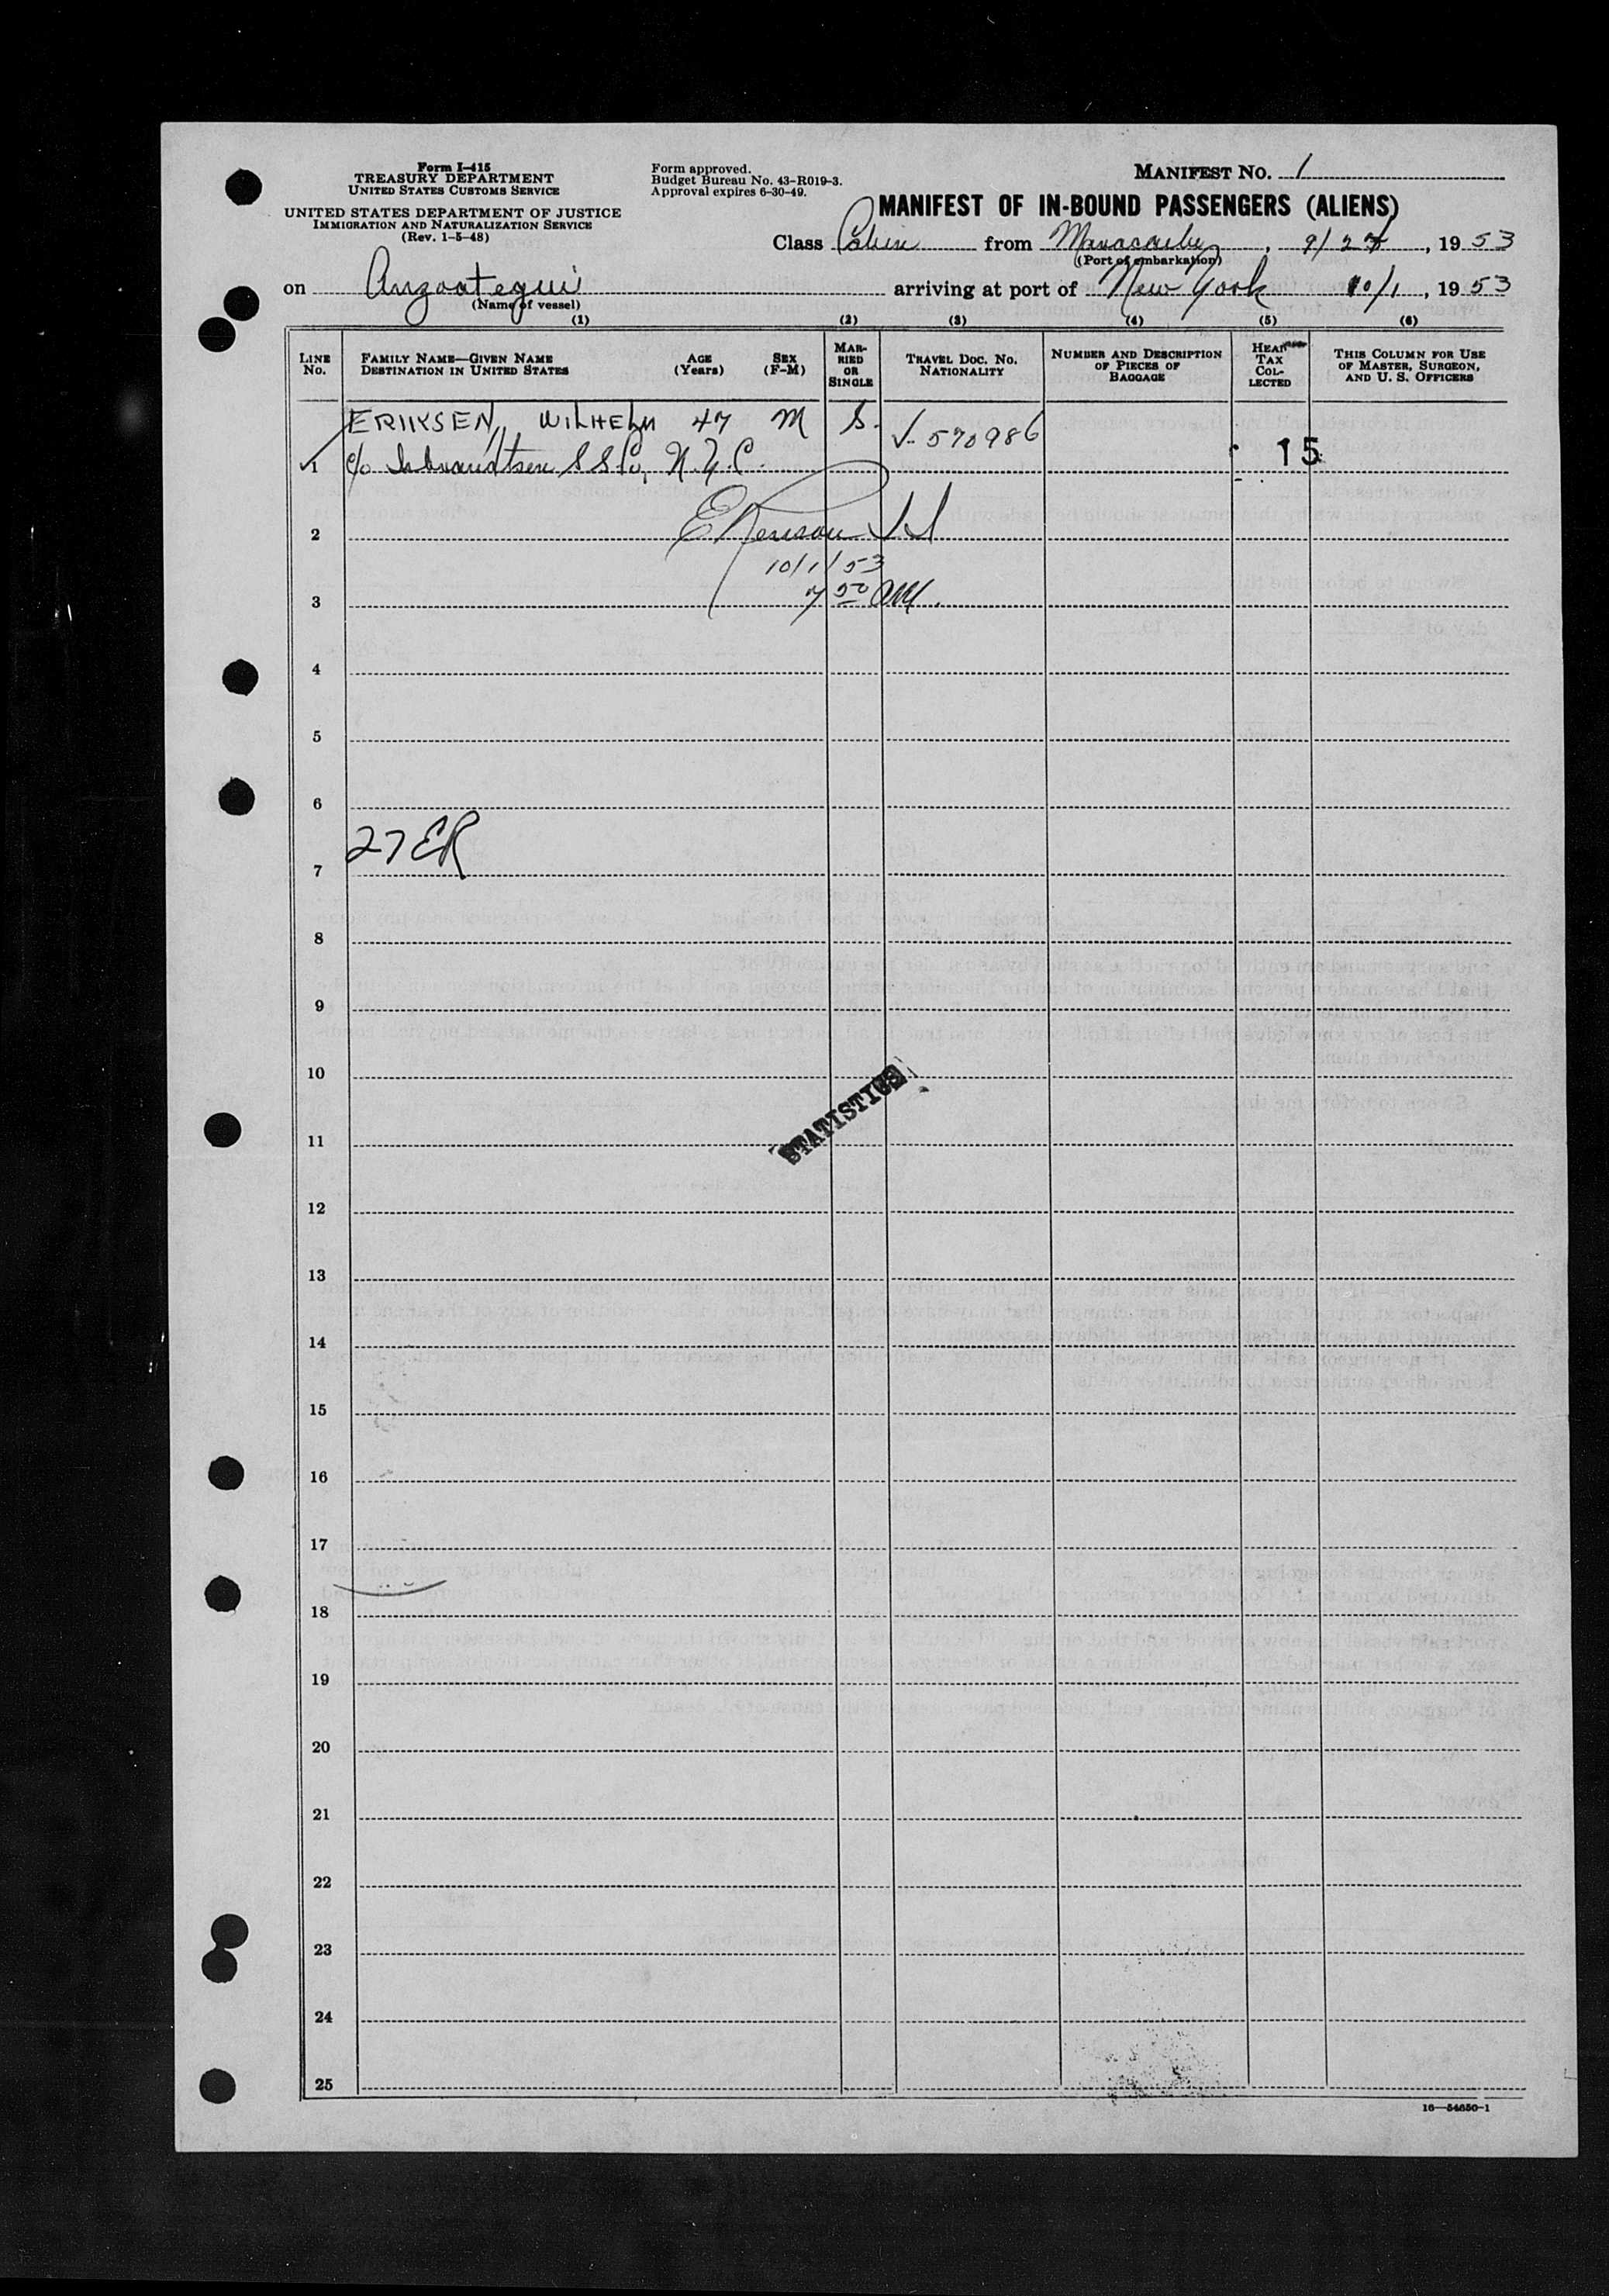 Form I-415
TREASURY DEPARTMENT
UNITED STATES CUSTOMS SERVICE
UNITED STATES DEPARTMENT OF JUSTICE
IMMIGRATION AND NATURALIZATION SERVICE
(Rev. 1-5-48)
Form approved.
Budget Bureau No. 43-R019-3.
Approval expires 6-30-49.
MANIFEST NO. 1
MANIFEST OF IN-BOUND PASSENGERS (ALIENS)
Class Cabin from Maracaibo, 9/27, 1953
(Port of embarkation)
on Anzoategui arriving at port of New York 10/1, 1953
(Name of vessel)
(1) (2) (3) (4) (5) (6)
LINE No. FAMILY NAME—GIVEN NAME DESTINATION IN UNITED STATES AGE (Years) SEX (F-M) MARRIED OR SINGLE TRAVEL DOC. NO. NATIONALITY NUMBER AND DESCRIPTION OF PIECES OF BAGGAGE HEAD TAX COLLECTED THIS COLUMN FOR USE OF MASTER, SURGEON, AND U. S. OFFICERS
ERIKSEN, WILHELM 47 M S. V-570986
1 c/o Isbrandtsen S S Co, N.Y.C. 15
2
10/1/53
3 7 50 AM.
4
5
6
27 ER
7
8
9
10
STATISTICS
11
12
13
14
15
16
17
18
19
20
21
22
23
24
25
16—54650-1